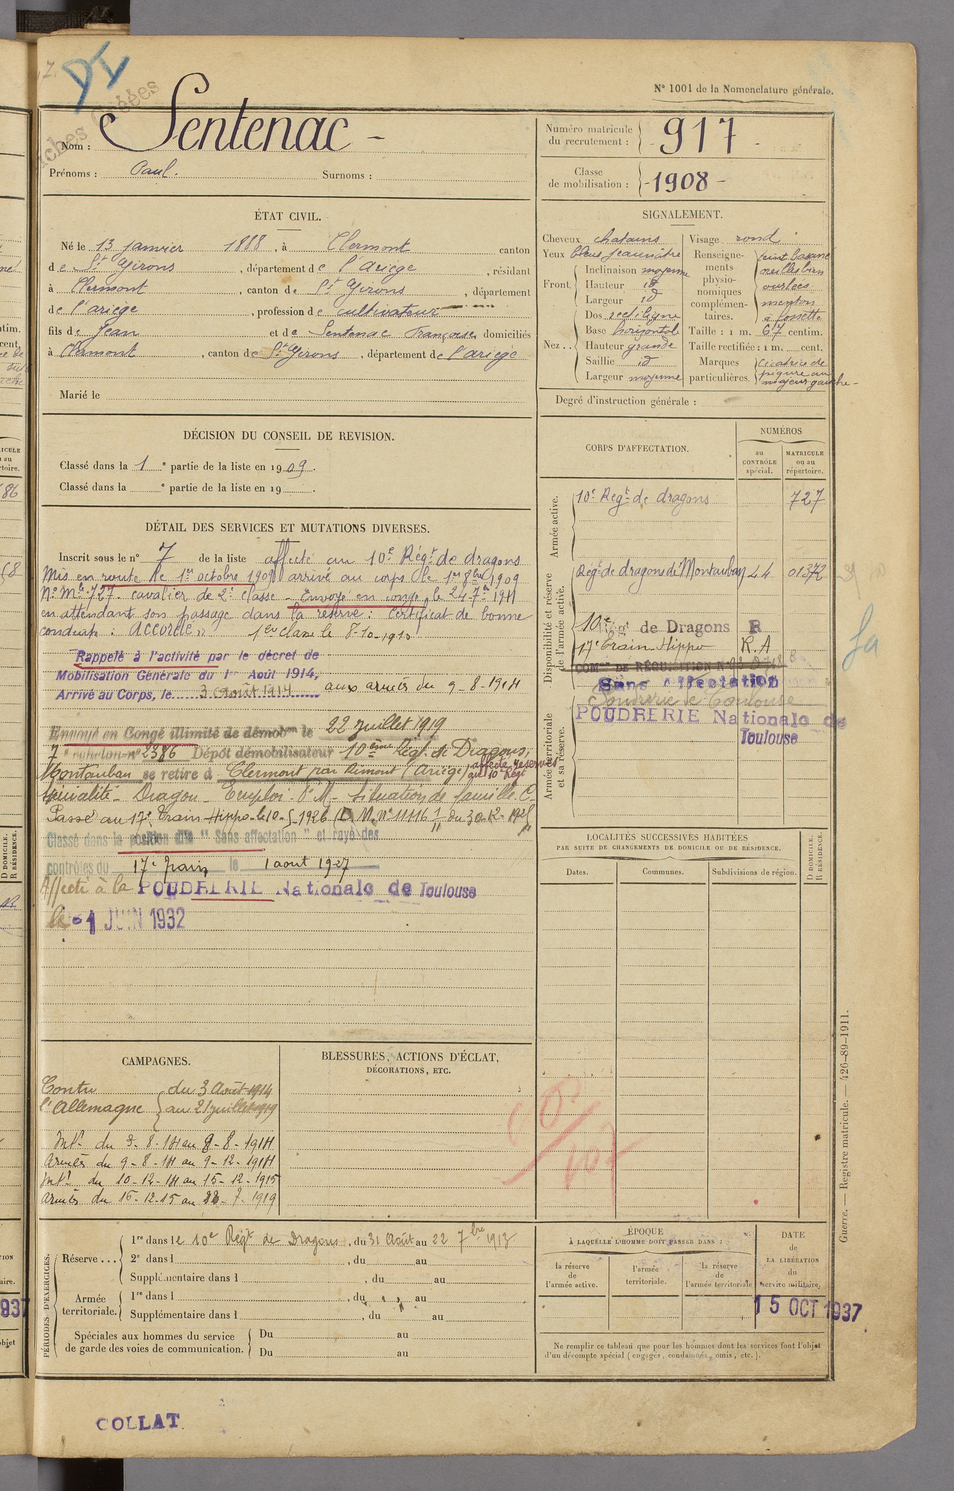 N° 1001 de la Nomenclature générale.
Nom : Sentenac
Prénoms : Paul. Surnoms :
Numéro matricule du recrutement : 917
Classe de mobilisation : 1908
ÉTAT CIVIL.
Né le 13 janvier 1888, à Clermont canton
de St Girons, département de l'Ariège, résidant
à Clermont, canton de St Girons, département
de l'ariège, profession de cultivateur
fils de Jean et de Sentenac Françoise domiciliés
à Clermont, canton de St Girons, département de l'ariège
Marié le
SIGNALEMENT.
Cheveux chatains
Yeux bleus jaunâtre
Front. Inclinaison moyenne
Hauteur id
Largeur id
Nez.. Dos rectiligne
Base horizontale
Hauteur grande
Saillie id
Largeur moyenne
Visage rond
Renseignements physionomiques complémentaires. teint basané
oreilles bien
ourlées
menton
à fossette
Taille : 1 m. 67 centim.
Taille rectifiée : 1 m. cent.
Marques particulières. cicatrice de
piqure au
majeur gauche
Degré d'instruction générale :
DÉCISION DU CONSEIL DE REVISION.
Classé dans la 1e partie de la liste en 1909.
Classé dans la e partie de la liste en 19 .
DÉTAIL DES SERVICES ET MUTATIONS DIVERSES.
Inscrit sous le n° 7 de la liste affecté au 10e Régt de dragons
Mis en route le 1er octobre 1909 arrivé au corps le 1er 8bre 1909
N° Mle 727. cavalier de 2e classe - Envoyé en congé, le 24 7bre 1911
en attendant son passage dans la réserve : Certificat de bonne
conduite : "Accordé" 1ere classe le 8-10-1910
Rappelé à l'activité par le décret de
Mobilisation Générale du 1er Août 1914,
Arrivé au Corps, le 3 Août 1914 aux armées du 9-8-1914
Envoyé en Congé illimité de démobon le 22 juillet 1919
7e échelon n° 2386 Dépôt démobilisateur 10ème Régt de Dragons,
Montauban se retire à Clermont par Rimont (Ariège) affecté réserve
au 10e Régt
Spécialité - Dragon - Emploi
Situation de famille C.
Passé au 17e Train Hippo le 10-5-1926
Classé dans la position dite " Sans affectation " et rayé des
contrôles du 17e Train le 1 aout 1927
Affecté à la POUDRERIE Nationale de Toulouse
le 1 JUIN 1932
CORPS D'AFFECTATION.
NUMÉROS
au CONTRÔLE spécial.
MATRICULE ou au répertoire.
Armée active.
10e Régt de dragons 727
Disponibilité et réserve de l'armée active.
Régt de dragons de Montauban 44 01372
10e Régt de Dragons R
17e Train Hippo R.A
Sans affectation
Armée territoriale et sa réserve.
Poudrerie de Toulouse
POUDRERIE Nationale de
Toulouse
LOCALITÉS SUCCESSIVES HABITÉES
PAR SUITE DE CHANGEMENTS DE DOMICILE OU DE RÉSIDENCE.
Dates. Communes. Subdivisions de région.
D DOMICILE.
R RÉSIDENCE.
CAMPAGNES.
Contre l'Allemagne du 3 Août 1914
au 21 juillet 1919
Intr du 3-8-14 au 8-8-1914
Armées du 9-8-14 au 9-12-1914
Intr du 10-12-14 au 15-12-1915
Armées du 16-12-15 au
-7-1919
BLESSURES, ACTIONS D'ÉCLAT,
DÉCORATIONS, ETC.
PÉRIODES D'EXERCICES.
Réserve... 1re dans le 10e Régt de Dragons, du 31 Août au 22 7bre 1913
2e dans l , du au
Supplémentaire dans l , du au
Armée territoriale. 1re dans l , du au
Supplémentaire dans l , du au
Spéciales aux hommes du service
de garde des voies de communication. Du au
Du au
ÉPOQUE
À LAQUELLE L'HOMME DOIT PASSER DANS :
la réserve de l'armée active.
l'armée territoriale.
la réserve de l'armée territoriale
DATE
de
LA LIBÉRATION
du
service militaire.
15 OCT 1937
Ne remplir ce tableau que pour les hommes dont les services font l'objet
d'un décompte spécial (engagés, condamnés, omis, etc.).
Guerre. — Registre matricule. — 426-89-1911.
COLLAT.